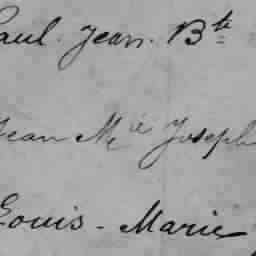 Paul. Jean. Bte
Jean Mie Joseph
Louis - Marie